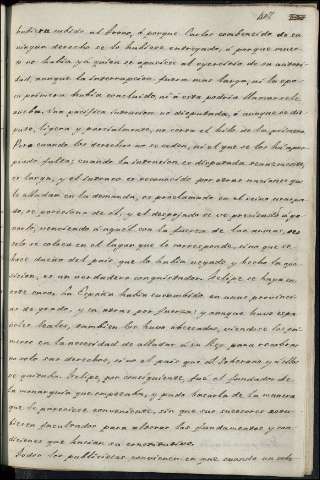 407
hubiera cedido al trono, ó porque Carlos convencido de su
ningun derecho se lo hubiese entregado, ó porque muer-
to no habia ya quien se opusiese al ejercicio de su autori-
dad, aunque la interrupcion fuera mas larga, ni la epo-
ca primera habia concluido, ni á esta podria llamarsele
nueva. Una pacifica intrusion no disputada, ó aunque se dis-
pute, ligera y parcialmente, no corta el hilo de la primera.
Pero cuando los derechos no se ceden, ni el que se los ha apro-
piado falta; cuando la intrusion es disputada tenazmente,
es larga, y el intruso es reconocido por otras naciones que
le ayudan en la demanda, es proclamado en el reino usurpa-
do, se posesiona de él, y el despojado se ve precisado á po-
nerlo, venciendo á aquel con la fuerza de las armas, no
solo se coloca en el lugar que le corresponde, sino que se
hace dueño del pais que le habia negado y hecho la opo-
sicion, es un verdadero conquistador. Felipe se haya en
este caso. La España habia sucumbido en unas provincias
de grado, y en otras por fuerza; y aunque hubo espa-
ñoles leales, tambien los hubo obcecados, viendose los pri-
meros en la necesidad de ayudar á su Rey para recobrar
no solo sus derechos, sino el pais que al Soberano y á ellos
se quitaba. Felipe, por consiguiente fué el fundador de
la monarquia que empezaba, y pudo hacerla de la manera
que le pareciese conveniente, sin que sus sucesores tuvie-
sen facultades para alterar los fundamentos y con-
diciones que hacian su constitutivo.
Todos los publicistas convienen en que cuando un sobe-